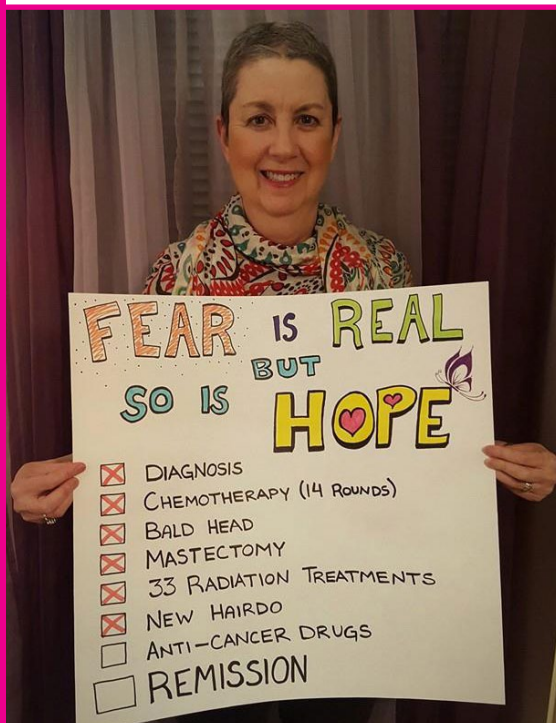 FEAR IS REAL
BUT
SO IS HOPE
DIAGNOSIS
CHEMOTHERAPY (14 ROUNDS)
BALD HEAD
MASTECTOMY
33 RADIATION TREATMENTS
NEW HAIRDO
ANTI-CANCER DRUGS
REMISSION